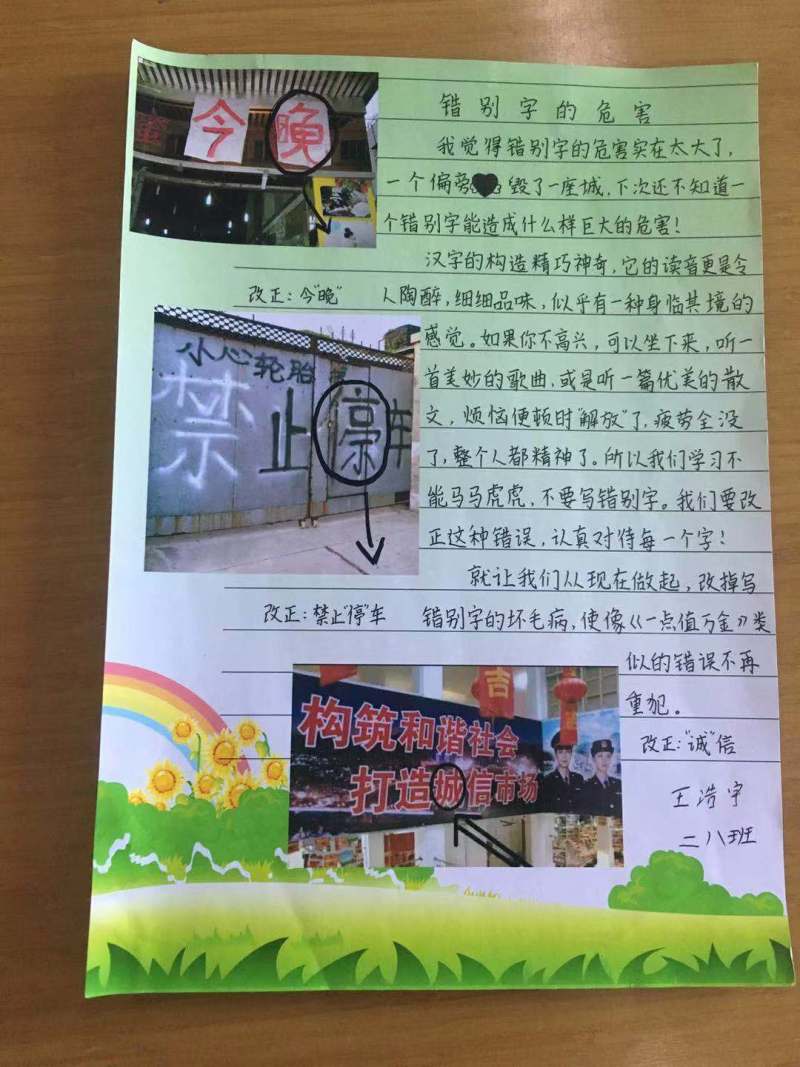 今晚
错别字的危害
我觉得错别字的危害实在太大了，
一个偏旁毁了一座城，下次还不知道一
个错别字能造成什么样巨大的危害！
汉字的构造精巧神奇，它的读音更是令
改正：今“晚”
人陶醉，细细品味，似乎有一种身临其境的
感觉。如果你不高兴，可以坐下来，听一
首美妙的歌曲，或是听一篇优美的散
文，烦恼便顿时“解放”了，疲劳全没
了，整个人都精神了。所以我们学习不
能马马虎虎，不要写错别字。我们要改
正这种错误，认真对待每一个字！
小心轮胎
禁止停车
就让我们从现在做起，改掉写
改正：禁止“停”车
错别字的坏毛病，使像《一点值万金》类
似的错误不再
重犯。
吉
构筑和谐社会
打造城信市场
改正：“诚”信
王浩宇
二八班